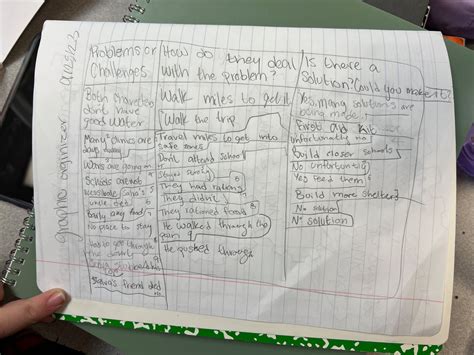 graphic orginizer
Problems or
Challenges
Both
don't have
good water
Many clinics are
days away
Wars are going on
Schools are not
uncle dies
Barly any food
No place to stay
Has to go through
the desert
Salva's friend died
How do they deal
with the problem?
Walk miles to get it
Walk the trip
Travel miles to get into
safe zones
Don't attend school
Stays strong
They had rations
They didn't
They rationed foods
He walked through the
pain
He pushed through
Is there a
solution? Could you make it?
Yes, many solutions are
being made
First aid kit
unfortunatly no
Build closer schools
No unfortunatly
Yes feed them
Build more shelters
No solution
No solution